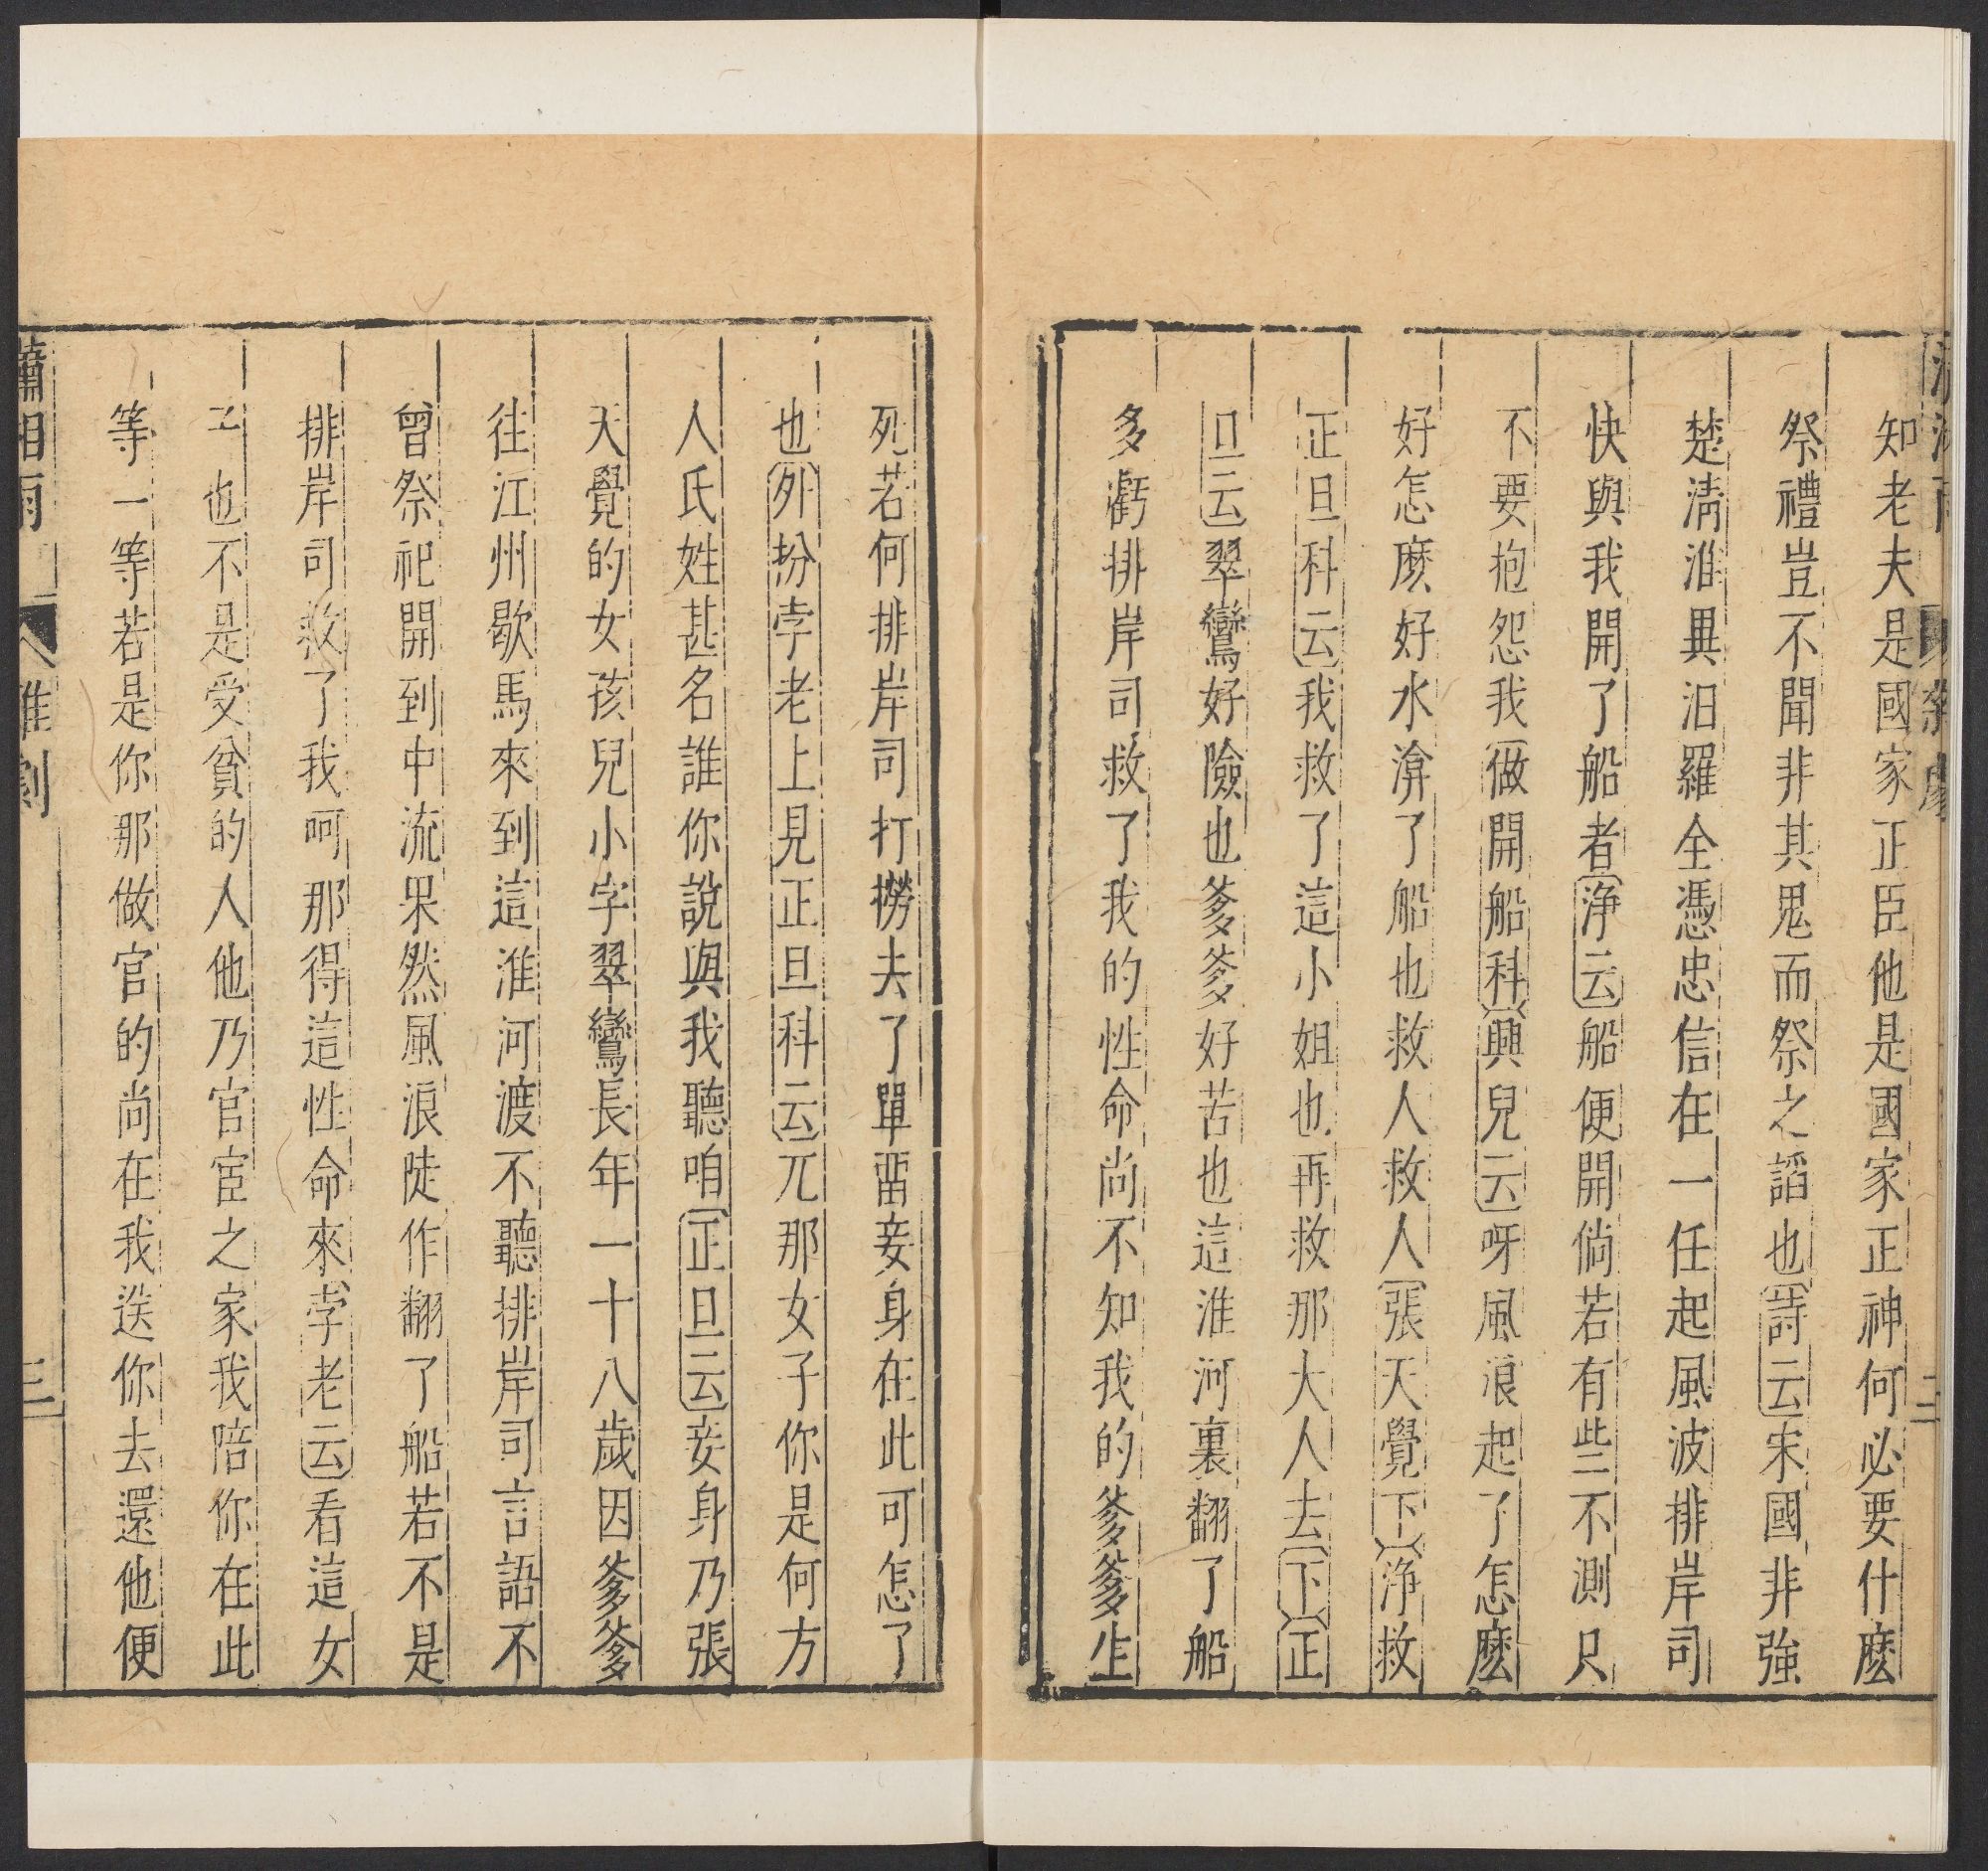 知老夫是國家正臣他是國家正神何必要什麽
祭禮豈不聞非其鬼而祭之謟也詩云宋國非強
楚淸淮異汨羅全憑忠信在一任起風波排岸司
快與我開了船者淨云船便開倘若有些不測只
不要抱怨我做開船科興兒云呀風浪起了怎麽
好怎麽好水渰了船也救人救人張天覺下淨救
正旦科云我救了這小姐也再救那大人去下正
旦云翠鸞好險也爹爹好苦也這淮河裏翻了船
多虧排岸司救了我的性命尚不知我的爹爹生
死若何排岸司打撈去了單畱妾身在此可怎了
也外扮孛老上見正旦科云兀那女子你是何方
人氏姓甚名誰你說與我聽咱正旦云妾身乃張
天覺的女孩兒小字翠鸞長年一十八歲因爹爹
往江州歇馬來到這淮河渡不聽排岸司言語不
曾祭祀開到中流果然風浪陡作翻了船若不是
排岸司救了我呵那得這性命來孛老云看這女
子也不是受貧的人他乃官宦之家我陪你在此
等一等若是你那做官的尚在我送你去還他便
瀟相雨 雜劇 三